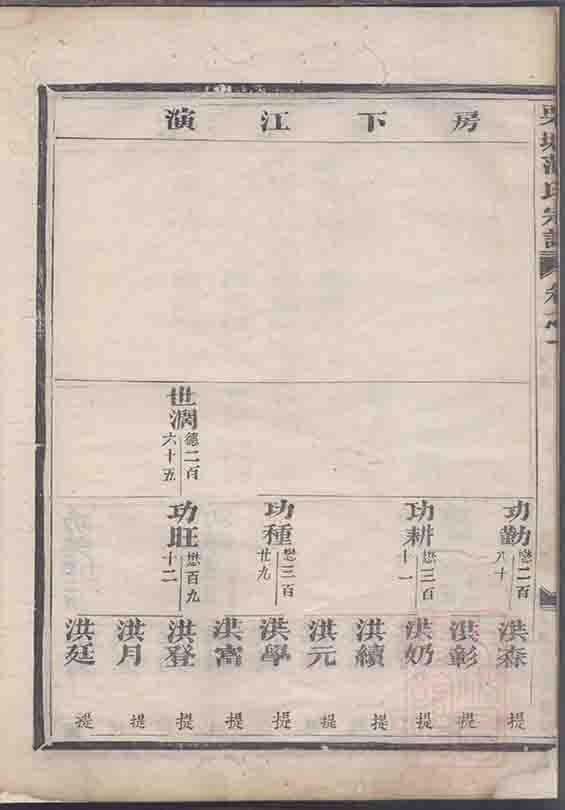 房下江演
世潤 德二百六十五
功勤 懋二百八十
功耕 懋三百十一
功種 懋三百廿九
功旺 懋百九十二
洪森 提
洪彰 提
洪奶 提
洪續 提
洪元 提
洪學 提
洪富 提
洪登 提
洪月 提
洪廷 提
氏宗譜 卷之一